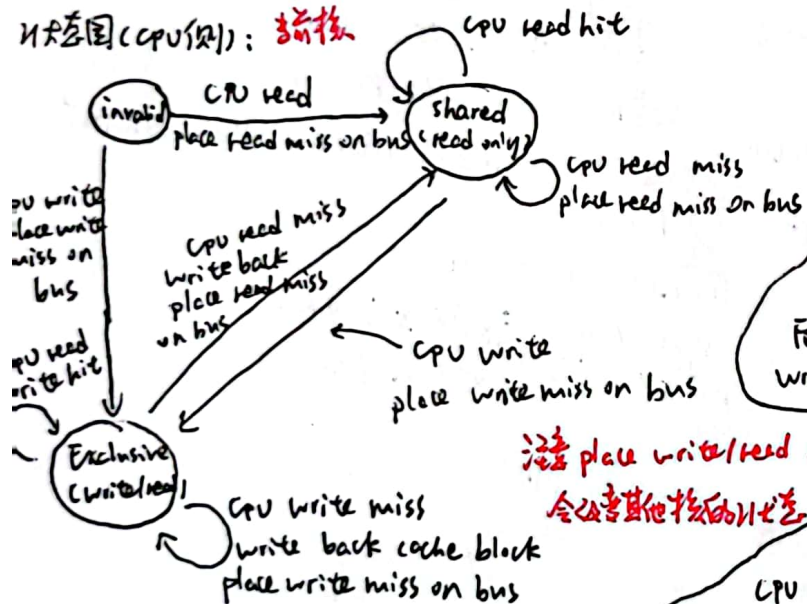 状态图(CPU侧)： 当前核
CPU read hit
invalid
CPU read
place read miss on bus
shared
(read only)
CPU read miss
place read miss on bus
CPU write
place write
miss on
bus
CPU read miss
write back
place read miss
on bus
CPU read
write hit
CPU write
place write miss on bus
Exclusive
(write/read)
注意 place write/read
会改变其他核的状态
CPU write miss
write back cache block
place write miss on bus
CPU